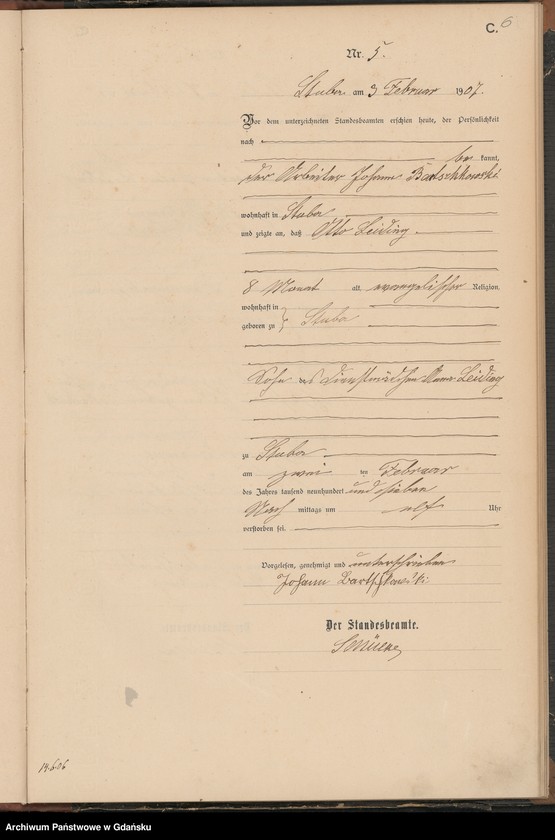 C. 6
Nr. 5.
Stuba am 3 Februar 1907.
Vor dem unterzeichneten Standesbeamten erschien heute, der Persönlichkeit
nach
be kannt,
der Arbeiter Johann Bartschkowski
wohnhaft in Stuba
und zeigte an, daß Otto Leiding
8 Monat alt, evangelischer Religion,
wohnhaft in
geboren zu } Stuba
Sohn des Dienstmädchen Leiding
zu Stuba
am zwei ten Februar
des Jahres tausend neunhundert und sieben
Nach mittags um elf Uhr
verstorben sei.
Vorgelesen, genehmigt und unterschrieben
Johann Bartschkowski
Der Standesbeamte.
14.6.06
Archiwum Państwowe w Gdańsku